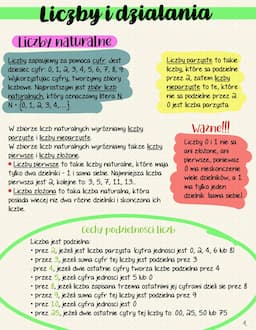 Liczby i działania
Liczby naturalne
Liczby zapisujemy za pomocą cyfr. Jest
dziesięć cyfr: 0, 1, 2, 3, 4, 5, 6, 7, 8, 9.
Wykorzystując cyfry, tworzymy zbiory
liczbowe. Najprostszym jest zbiór liczb
naturalnych, który oznaczamy literą N.
N = {0, 1, 2, 3, 4, ...}
Liczby parzyste to takie
liczby, które są podzielne
przez 2, zatem liczby
nieparzyste to te, które
nie są podzielne przez 2.
0 jest liczbą parzystą.
W zbiorze liczb naturalnych wyróżniamy liczby
parzyste i liczby nieparzyste.
W zbiorze liczb naturalnych wyróżniamy także liczby
pierwsze i liczby złożone.
• Liczby pierwsze to takie liczby naturalne, które mają
tylko dwa dzielniki - 1 i samą siebie. Najmniejszą liczbą
pierwszą jest 2, kolejne to: 3, 5, 7, 11, 13...
• Liczba złożona to taka liczba naturalna, która
posiada więcej niż dwa różne dzielniki i skończoną ich
liczbę.
Ważne!!!
Liczby 0 i 1 nie są
ani złożone, ani
pierwsze, ponieważ
0 ma nieskończenie
wiele dzielników, a 1
ma tylko jeden
dzielnik (samą siebie)
Cechy podzielności liczb
Liczba jest podzielna:
• przez 2, jeżeli jest liczbą parzystą (cyfrą jedności jest 0, 2, 4, 6 lub 8)
• przez 3, jeżeli suma cyfr tej liczby jest podzielna przez 3
• przez 4, jeżeli dwie ostatnie cyfry tworzą liczbę podzielną przez 4
• przez 5, jeżeli cyfrą jedności jest 5 lub 0
• przez 8, jeżeli liczba zapisana trzema ostatnimi jej cyframi dzieli się przez 8
• przez 9, jeżeli suma cyfr tej liczby jest podzielna przez 9
• przez 10, jeżeli cyfrą jedności jest 0
• przez 25, jeżeli dwie ostatnie cyfry tej liczby to: 00, 25, 50 lub 75
1